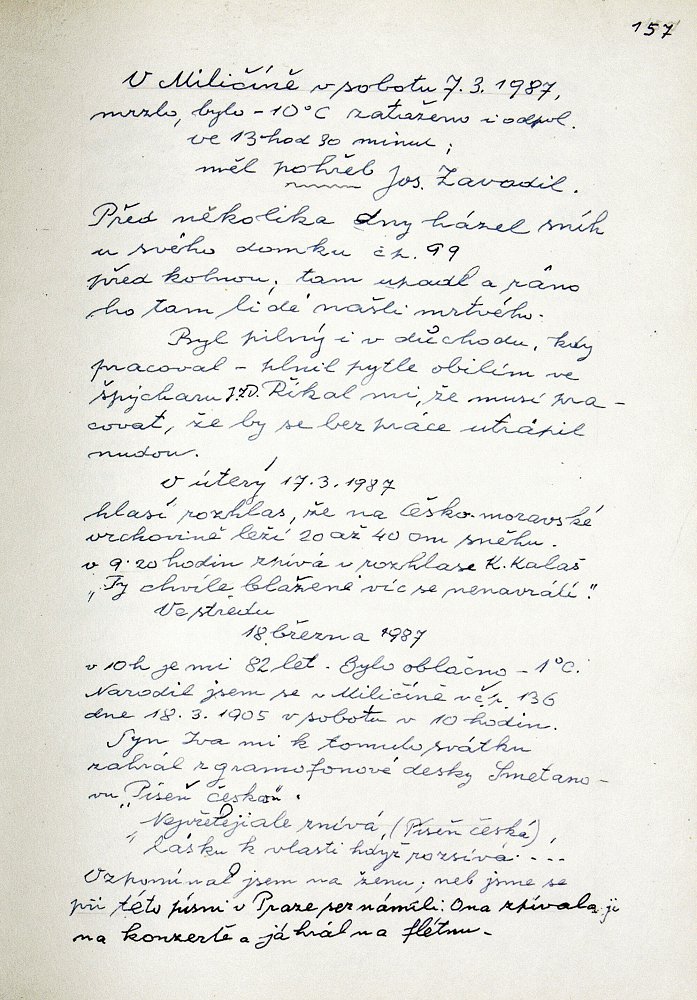 157
V Miličíně v sobotu 7.3.1987,
mrzlo, bylo -10°C zataženo i odpol.
ve 13 hod 30 minut;
měl pohřeb Jos. Zavadil.
Před několika dny házel sníh
u svého domku čp. 99
před kolnou, tam upadl a ráno
ho tam lidé našli mrtvého.
Byl pilný i v důchodu, kdy
pracoval - plnil pytle obilím ve
špýcharu JZD. Říkal mi, že musí pra-
covat, že by se bez práce utrápil
nudou.
V úterý 17.3.1987
hlasí rozhlas, že na Česko-moravské
vrchovině leží 20 až 40 cm sněhu.
v 9.20 hodin zpívá v rozhlase K. Kalaš
„Ty chvíle blažené víc se nenavrátí."
Ve středu
18. března 1987
v 10h je mi 82 let. Bylo oblačno -1°C.
Narodil jsem se v Miličíně v čp. 136
dne 18.3.1905 v sobotu v 10 hodin.
Syn Iva mi k tomuto svátku
zahrál z gramofonové desky Smetano-
vu „Píseň českou".
„Nejsvětěji ale znívá, (Píseň česká)
lásku k vlasti když rozsívá...
Vzpomínal jsem na ženu, neb jsme se
při této písni v Praze seznámili: Ona zpívala ji
na konzertě a já hrál na flétnu-